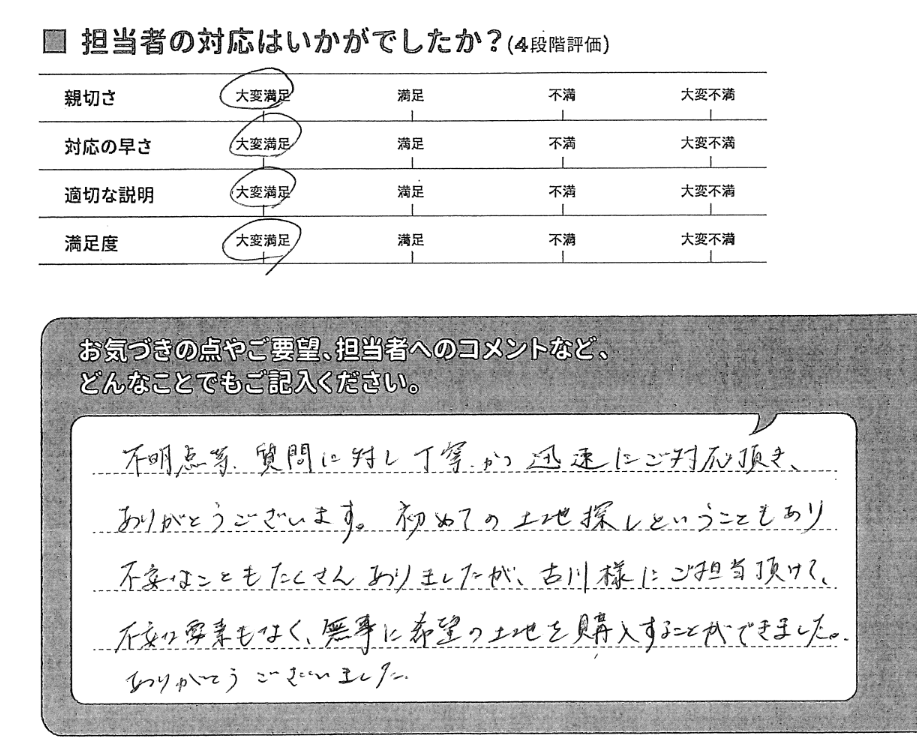 ■ 担当者の対応はいかがでしたか？(4段階評価)
親切さ 大変満足 満足 不満 大変不満
対応の早さ 大変満足 満足 不満 大変不満
適切な説明 大変満足 満足 不満 大変不満
満足度 大変満足 満足 不満 大変不満
お気づきの点やご要望、担当者へのコメントなど、
どんなことでもご記入ください。
不明点等、質問に対し丁寧かつ迅速にご対応頂き、
ありがとうございます。初めての土地探しということもあり
不安なこともたくさんありましたが、古川様にご担当頂けて、
不安な要素もなく、無事に希望の土地を購入することができました。
ありがとうございました。